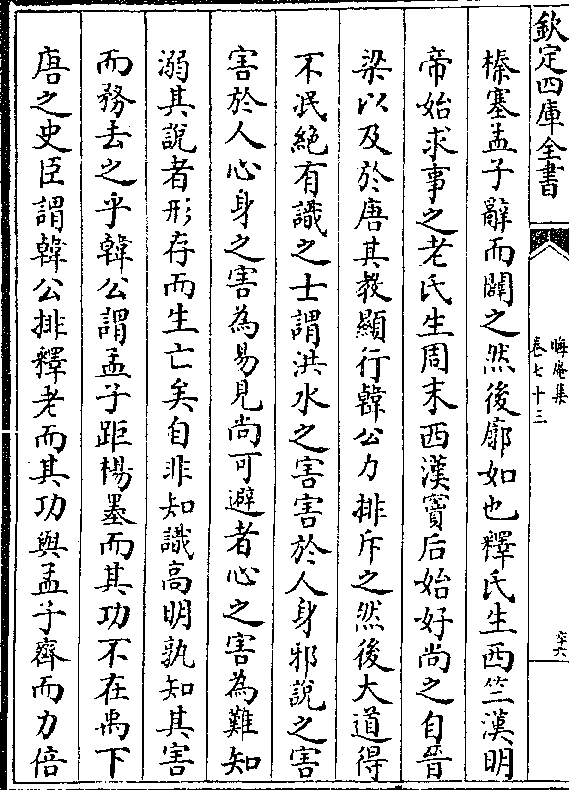 欽定四庫全書
晦庵集
卷七十三
六
榛塞孟子辭而闢之然後廓如也釋氏生西竺漢明
帝始求事之老氏生周末西漢竇后始好尚之自晉
梁以及於唐其教顯行韓公力排斥之然後大道得
不泯絕有識之士謂洪水之害害於人身邪說之害
害於人心身之害為易見尚可避者心之害為難知
溺其說者形存而生亡矣自非知識高明孰知其害
而務去之乎韓公謂孟子距楊墨而其功不在禹下
唐之史臣謂韓公排釋老而其功與孟子齊而力倍